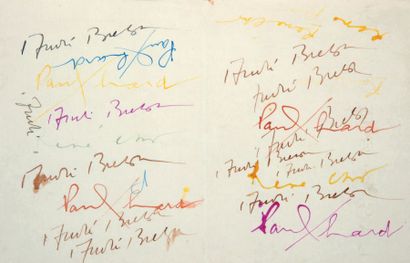 André Breton
Paul Eluard
Paul Eluard
André
André Breton
René Char
André Breton
Paul Eluard
André Breton
André Breton
René Char
André Breton
André Breton
Paul Eluard
André Breton
André Breton
André Breton
René Char
André Breton
Paul Eluard